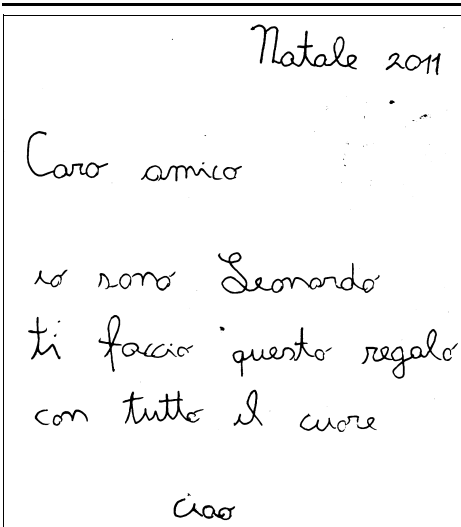 Natale 2011
Caro amico
io sono Leonardo
ti faccio questo regalo
con tutto il cuore
ciao